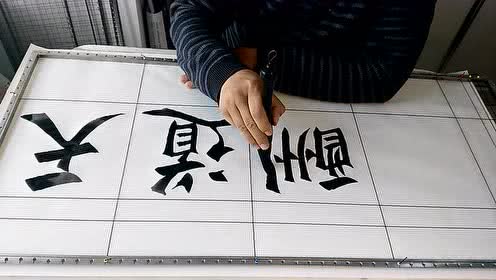 天道酬